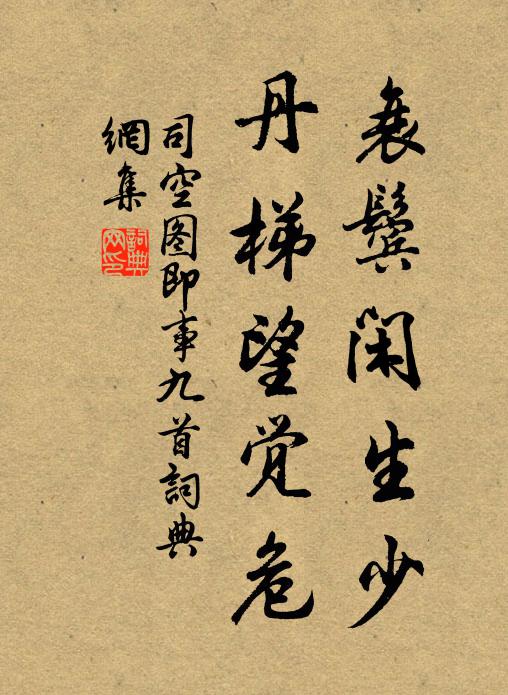 衰鬓閑生少
丹梯望觉危
司空图即事九首詞典
網集
詞典網印